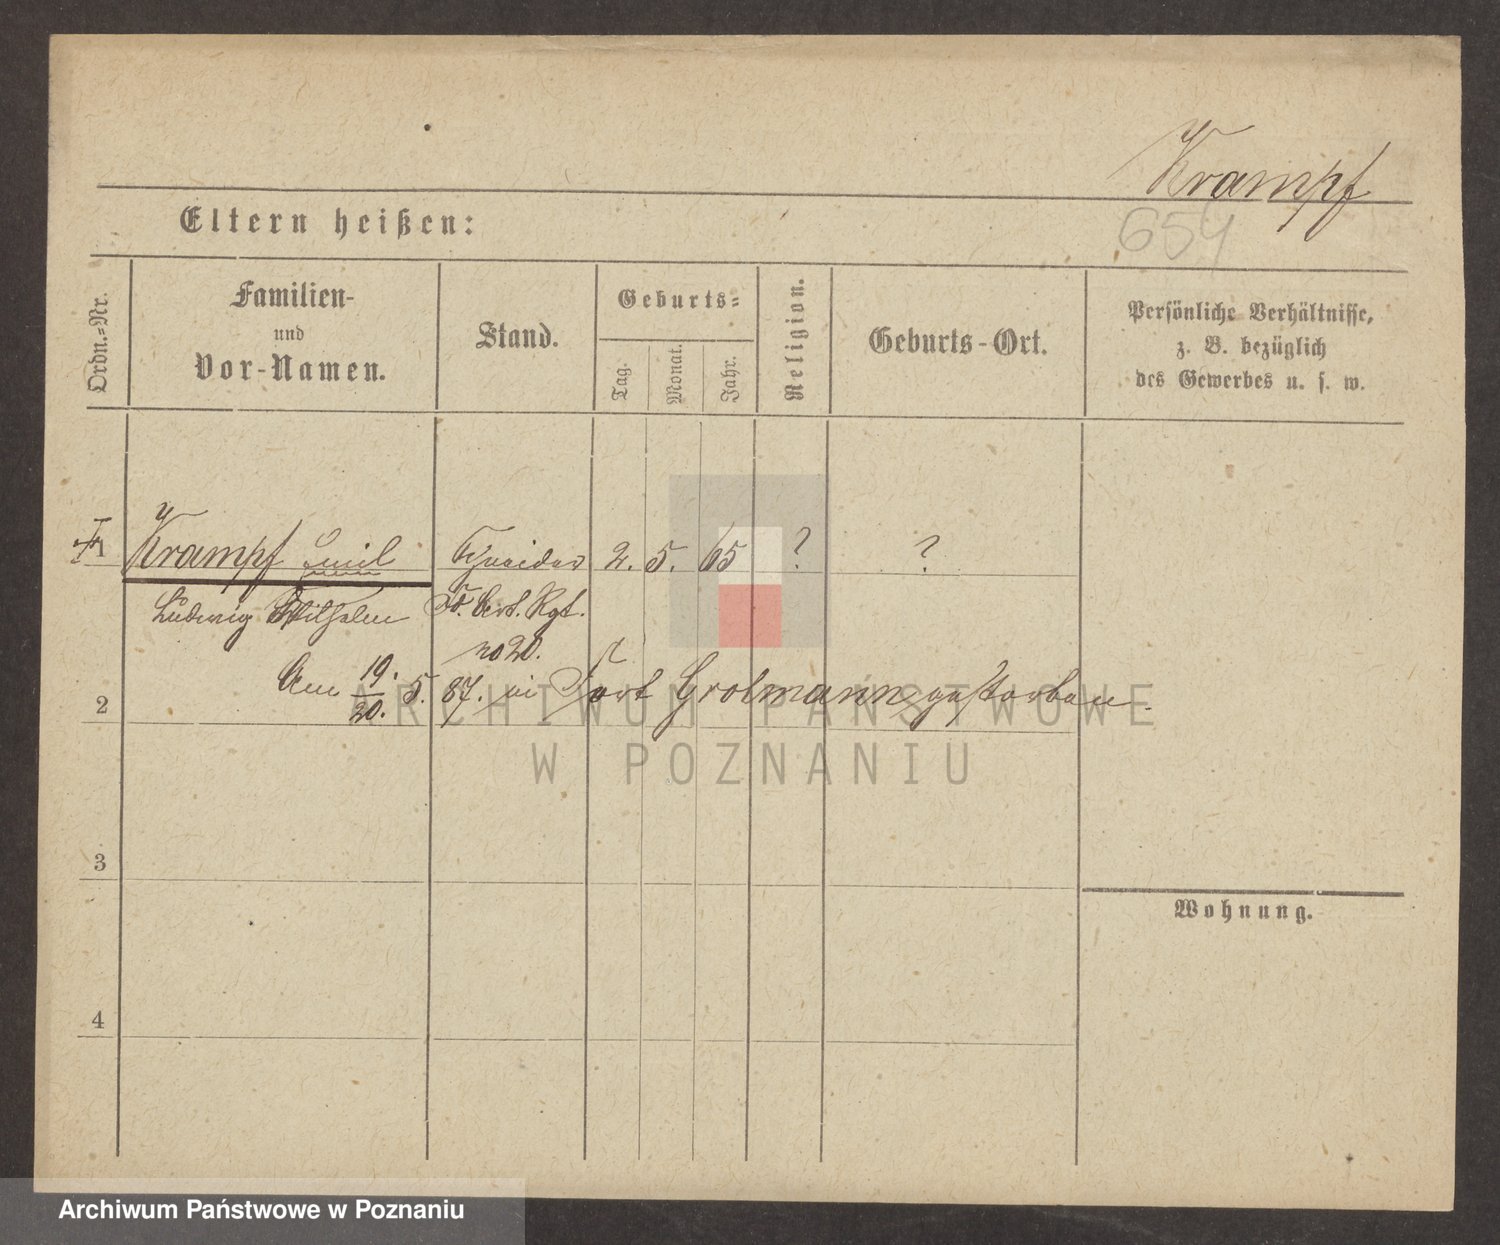 Krampf
654
Eltern heißen:
Ordn.-Nr.
Familien-
und
Vor-Namen.
Stand.
Geburts-
Tag.
Monat.
Jahr.
Religion.
Geburts-Ort.
Persönliche Verhältnisse,
z. B. bezüglich
des Gewerbes u. s. w.
1 Krampf Emil Schneider 2. 5. 65 ? ?
Ludwig Wilhelm Rgt.
no 20.
Am 19./20. 5. 87. in Fort Grolmann gestorben.
2
3
Wohnung.
4
ARCHIWUM PAŃSTWOWE
W POZNANIU
Archiwum Państwowe w Poznaniu